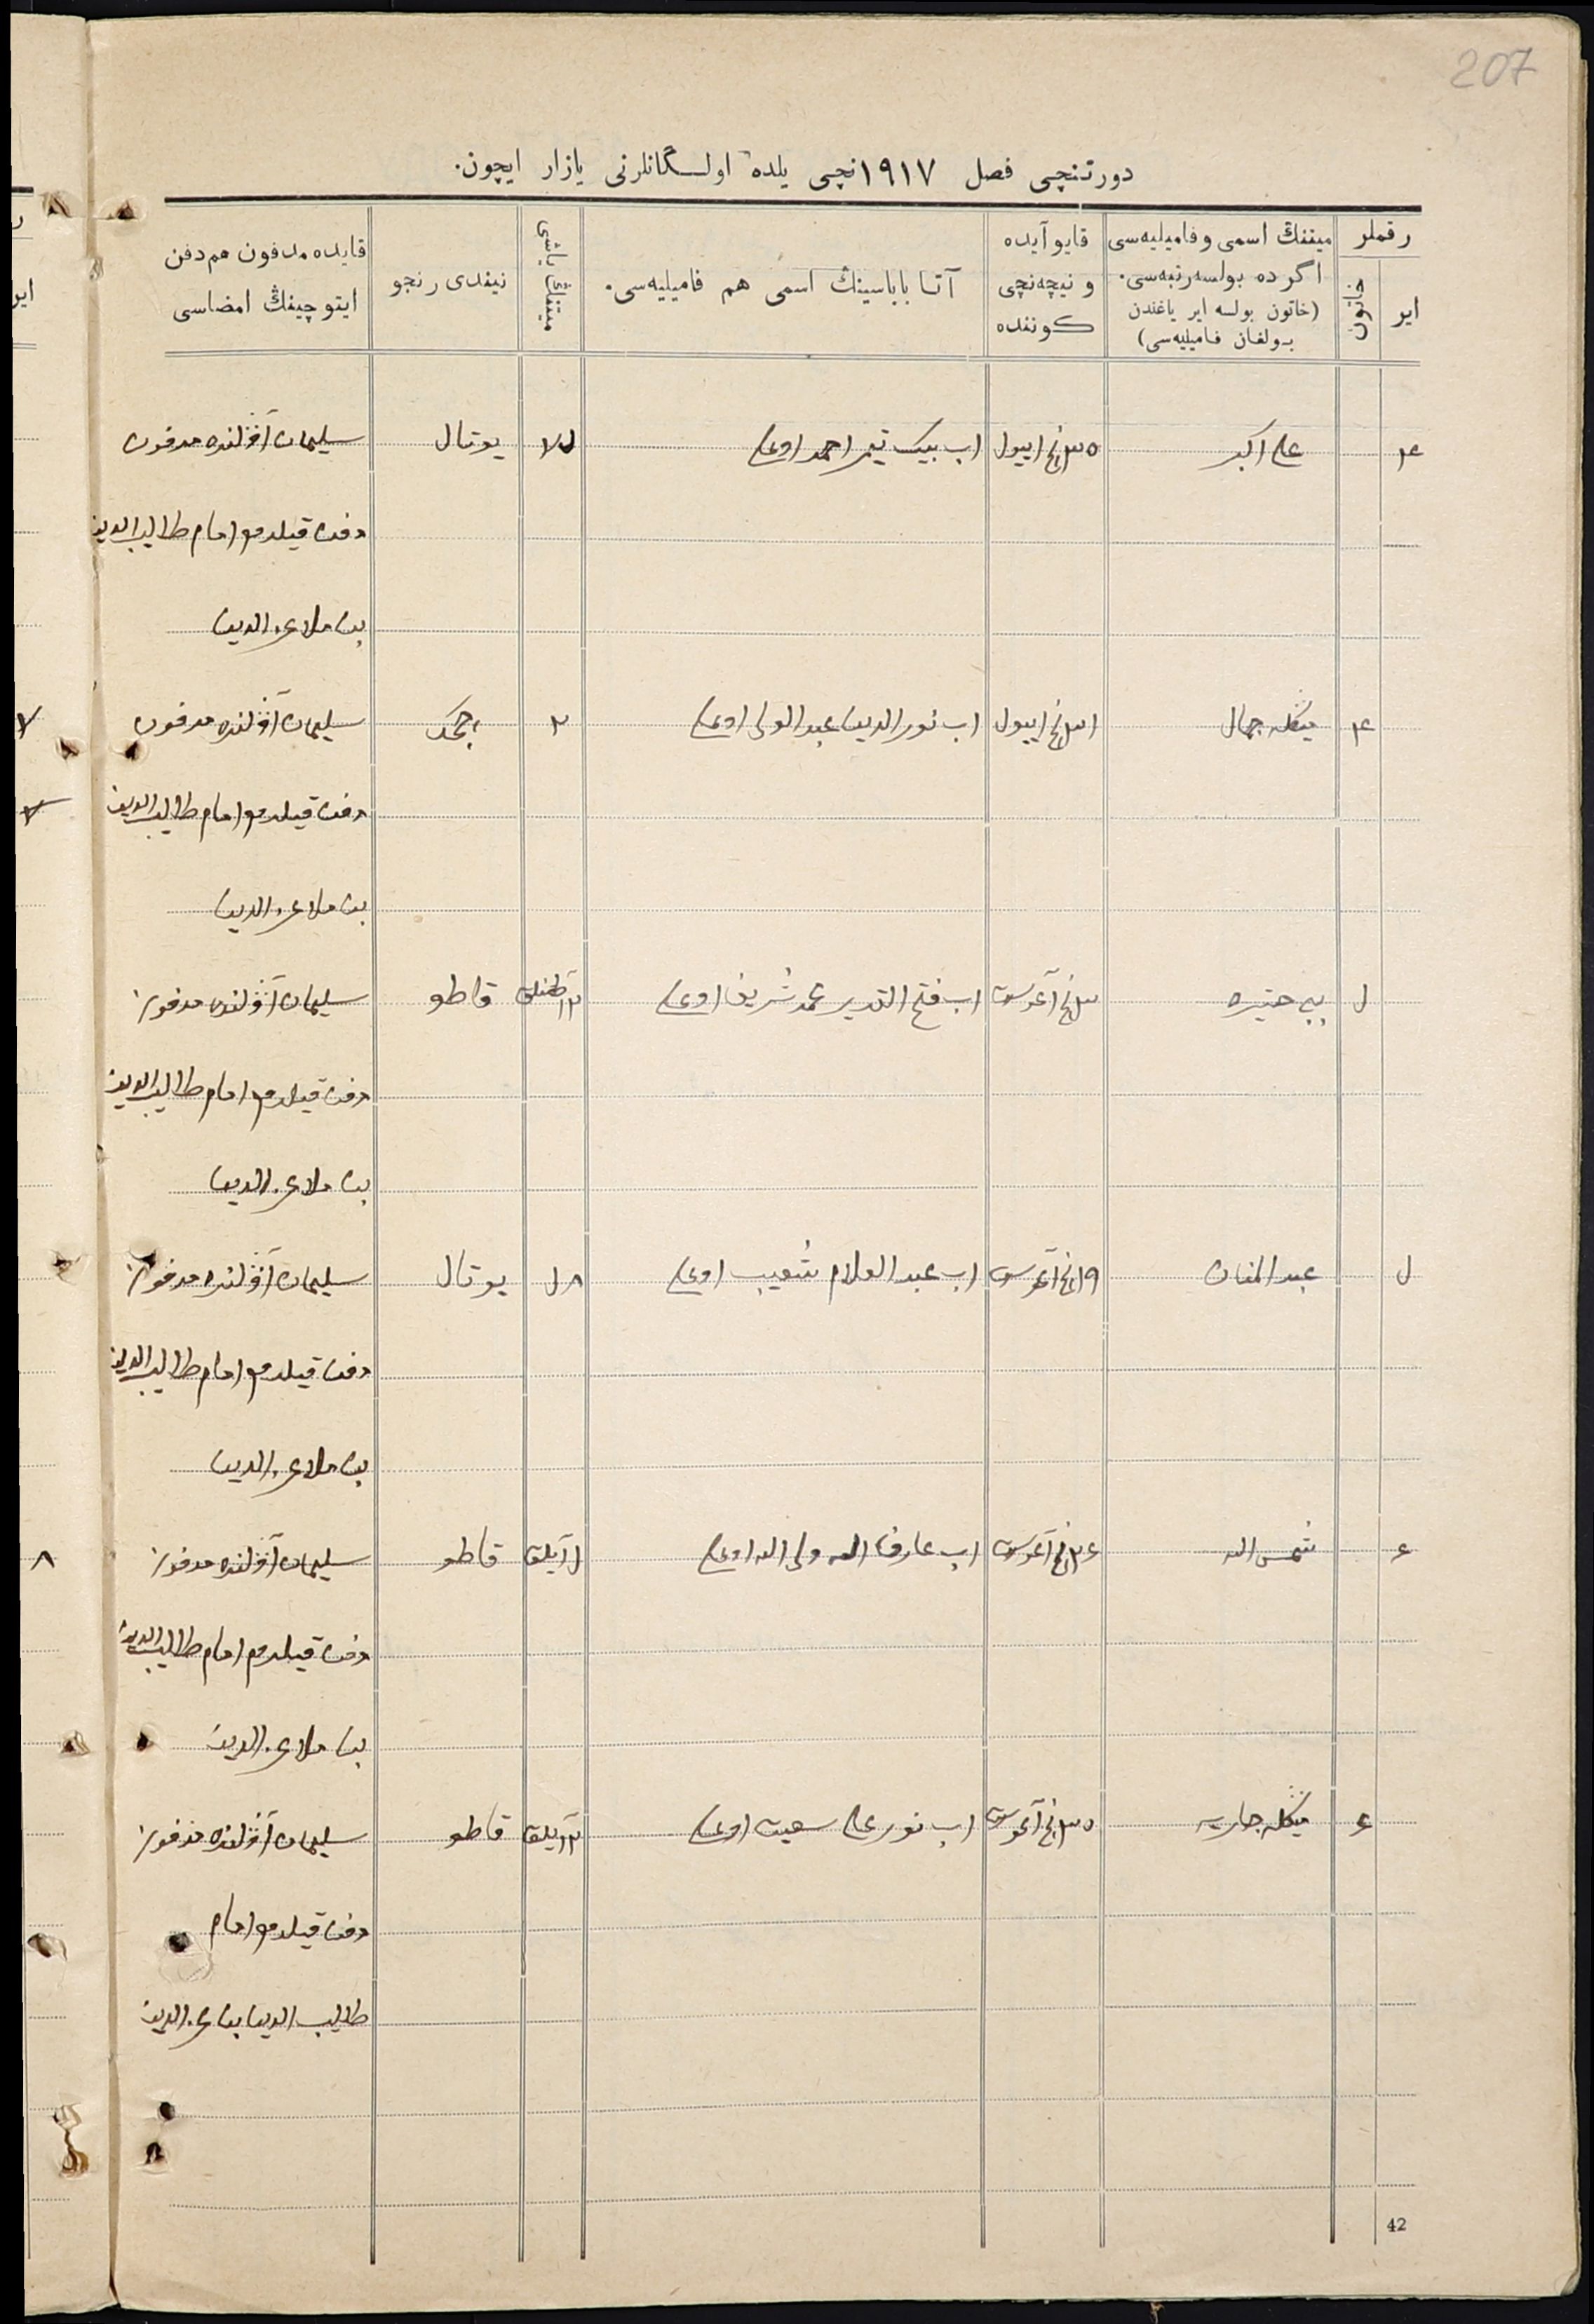 207
دورتنچی فصل ١٩١٧نچی یلده اولـگانلرنی یازار ایچون.
رقملر
ایر
خاتون
میتنڭ اسمی و فامیلیه‌سی
اگرده بولسه رتبه‌سی.
(خاتون بولسه ایر یاغندن
بولغان فامیلیه‌سی)
قایو آیده
و نیچه‌نچی
کوننده
آتا باباسینڭ اسمی هم فامیلیه‌سی.
میتنڭ یاشی
نیندی رنجو
قایده مدفون هم دفن
ایتوچینڭ امضاسی
علی اکبر
اب بیک تیمر احمد اوغلی
یوتال
سلیمان آڤلنده مدفون
دفن قیلدم امام طالب الدین
بن ملا عز الدین
مینکله جمال
٣١نچی اییول
اب نور الدین عبد الولی اوغلی
٢
سلیمان آڤلنده مدفون
دفن قیلدم امام طالب الدین
بن ملا عز الدین
٣نچی آغوست
اب فتح القدیر محمد شریف اوغلی
قاطو
سلیمان آڤلنده مدفون
دفن قیلدم امام طالب الدین
بن ملا عز الدین
عبد المنان
١٩نچی آغوست
اب عبد العلام شعیب اوغلی
یوتال
سلیمان آڤلنده مدفون
دفن قیلدم امام طالب الدین
بن ملا عز الدین
٨
شمس الله
آغوست
اب عارف الله ولی الله اوغلی
آیلق
قاطو
سلیمان آڤلنده مدفون
دفن قیلدم امام طالب الدین
بن ملا عز الدین
مینکله جاریه
آغوست
اب نور علی سعیت اوغلی
آیلق
قاطو
سلیمان آڤلنده مدفون
دفن قیلدم امام
طالب الدین بن عز الدین
42